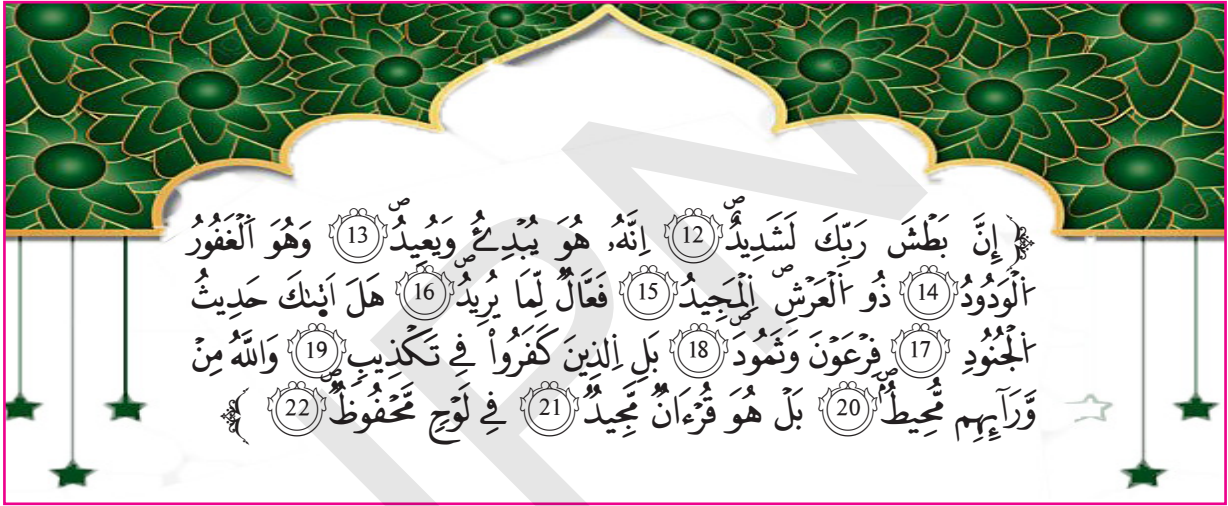 ﴿إِنَّ بَطْشَ رَبِّكَ لَشَدِيدٌۖ 12 اِنَّهُۥ هُوَ يُبْدِئُ وَيُعِيدُۖ 13 وَهُوَ اَ۬لْغَفُورُ
اُ۬لْوَدُودُ 14 ذُو اُ۬لْعَرْشِ اِ۬لْمَجِيدُۖ 15 فَعَّالٞ لِّمَا يُرِيدُۖ 16 هَلَ اَت۪يٰكَ حَدِيثُ
اُ۬لْجُنُودِ 17 فِرْعَوْنَ وَثَمُودَۖ 18 بَلِ اِ۬لذِينَ كَفَرُواْ فِي تَكْذِيبٖۖ 19 وَاللَّهُ مِنْ
وَّرَآئِهِم مُّحِيطُۢۖ 20 بَلْ هُوَ قُرْءَانٞ مَّجِيدٞ 21 فِي لَوْحٖ مَّحْفُوظٞۖ 22 ﴾
IPN